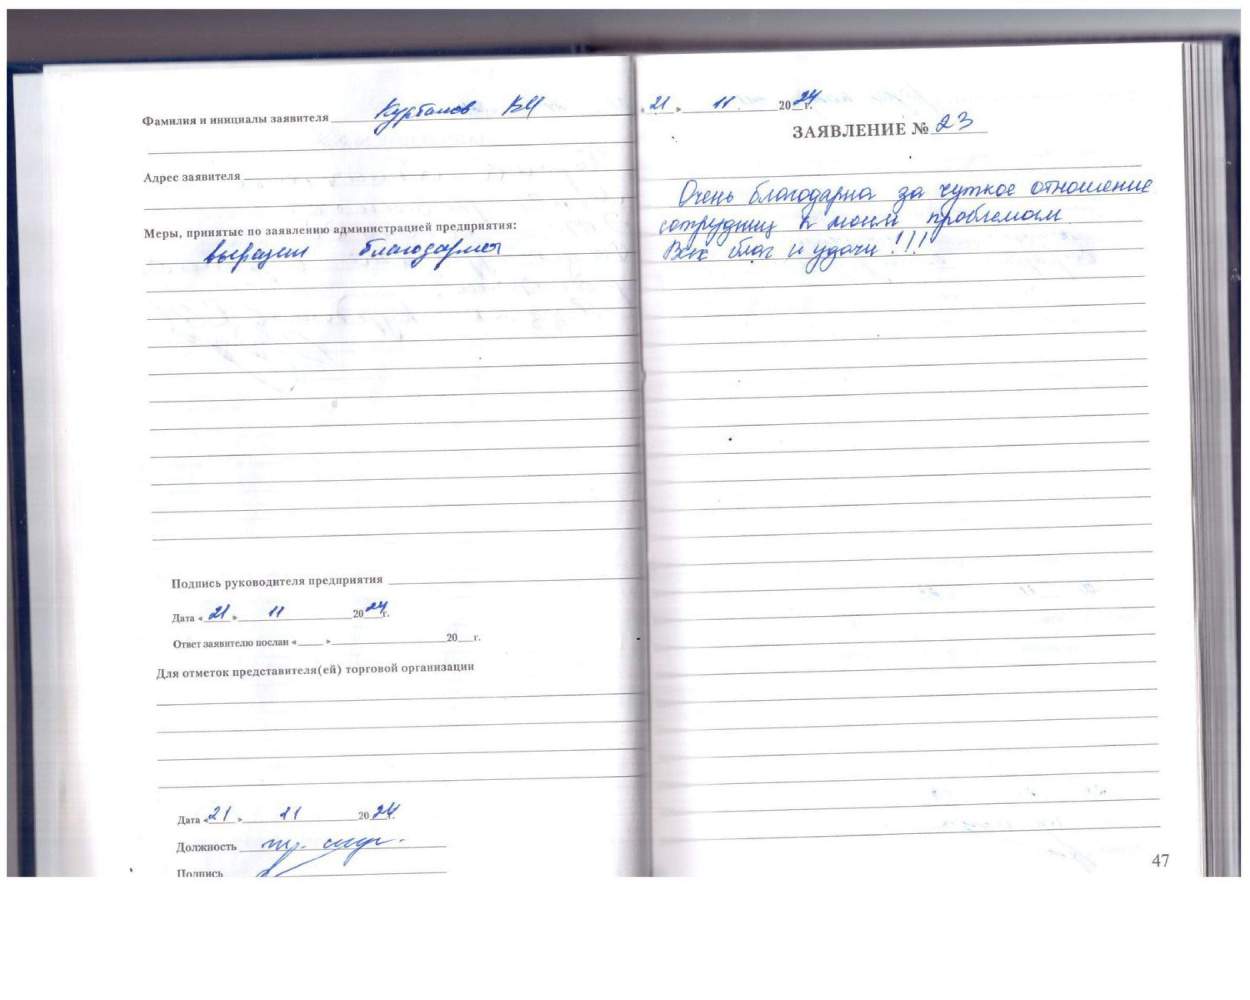 Фамилия и инициалы заявителя
Адрес заявителя
Меры, принятые по заявлению администрацией предприятия:
благодарность
Подпись руководителя предприятия
Дата «21» 11 2024г.
Ответ заявителю послан «    »    20   г.
Для отметок представителя(ей) торговой организации
Дата «21» 11 2024г.
Должность
Подпись
«21» 11 2024г.
ЗАЯВЛЕНИЕ № 23
Очень благодарна за чуткое отношение
сотрудниц к моим проблемам
Всех благ и удачи!!!
47